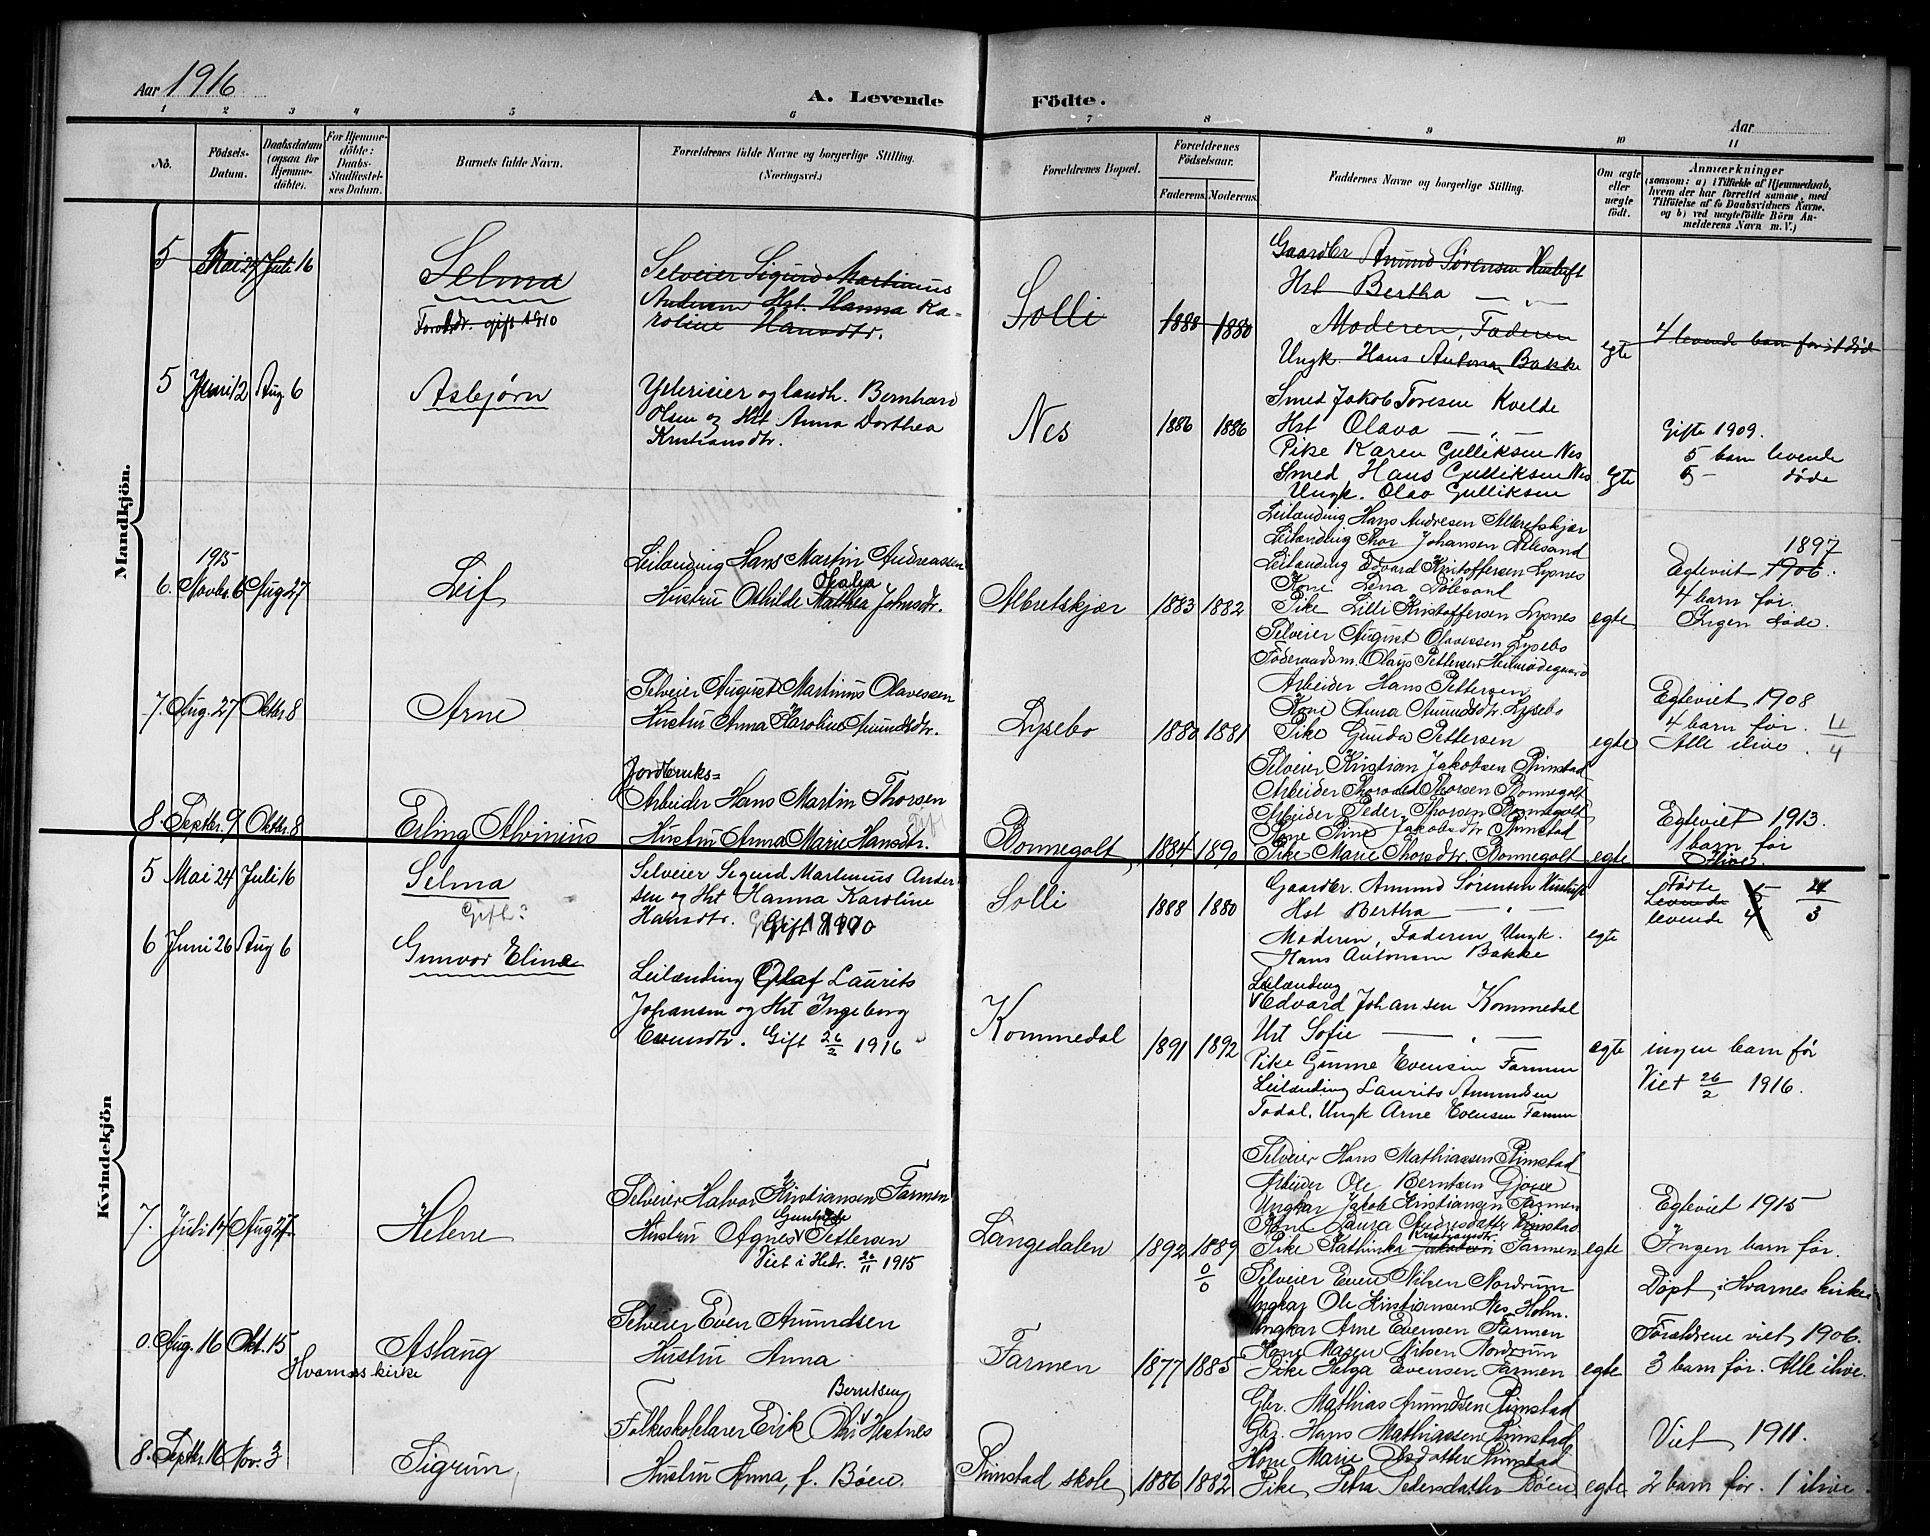 Aar 1916
A. Levende Födte.
Aar
1 2 3 4 5 6 7 8 9 10 11
No.
Födsels-Datum.
Daabsdatum (ogsaa for Hjemmedöbte).
For Hjemmedöbte: Daabs-Stadfæstelses Datum.
Barnets fulde Navn.
Forældrenes fulde Navne og borgerlige Stilling. (Næringsvei.)
Forældrenes Bopæl.
Forældrenes Födselsaar.
Faderens. Moderens.
Faddernes Navne og borgerlige Stilling.
Om ægte eller uægte födt.
Anmærkninger
(saasom: a) i Tilfælde af Hjemmedaab, hvem der har forrettet samme, med Tilföielse af to Daabsvidners Navne, og b) ved uægtefödte Börn Anmelderens Navn m. V.)
Mandkjön.
5 Mai 24 Juli 16
Selma
gift 1910
Selveier Sigurd Martinius
Andersen Hst. Hanna Ka-
roline Hansdtr.
Solli
1888 1880
Gaardbr Amund Sørensen
Hst Bertha — „ —
Moderen, Faderen
Ungk. Hans Antonsen Bakke
egte
4 levende barn før 1 død
5 Juni 12 Aug 6
Asbjørn
og landh. Bernhard
Olsen og Hst Anna Dorthea
Kristiansdtr.
Nes
1886 1886
Smed Jakob Toresen Kvelde
Hst Olava — „ —
Pike Karen Gulliksen Nes
Smed Hans Gulliksen Nes
Ungk. Olav Gulliksen
egte
Gifte 1909.
5 barn levende
5 — døde
1915
6. Novbr. 6 Aug 27
Leif
Leilænding Hans Martin Andreassen
Hustru Othilde Mathea Johnsdtr.
Albretskjær
1883 1882
Leilænding Hans Andresen Albretskjær
Leilænding Thor Johansen Dølesand
Leilænding Edvard Kristoffersen Lysnes
Kone Lena Dølesand
Pike Lilli Kristoffersen Lysnes
egte
1897
Egteviet 1906.
4 barn før.
Ingen døde.
7. Aug. 27 Oktbr 8
Arne
Selveier August Martinius Olavessen
Hustru Anna Karoline Amundsdtr.
Lysebo
1880 1881
Selveier August Olavessen Lysebo
Föderaadsm. Olaus Pettersen
Arbeider Hans Pettersen
Kone Anna Amundsdtr. Lysebo
Pike Gunda Pettersen
egte
Egteviet 1908
4 barn før.
Alle ilive.
4
8. Septbr. 9 Oktbr. 8
Erling Alvinius
Jordbruks=
Arbeider Hans Martin Thorsen
Hustru Anna Marie Hansdtr.
Bonnegolt
1884 1890
Selveier Kristian Jakobsen Rimstad
Arbeider Thorvald Thorsen Bonnegolt
Arbeider Peder Thorsen Bonnegolt
Kone Jakobsdtr Rimstad
Pike Marie Thorsdtr. Bonnegolt
egte
Egteviet 1913.
1 barn før
ilive.
Kvindekjön
5 Mai 24 Juli 16
Selma
Gift?
Selveier Sigurd Martinius Ander-
sen og Hst Hanna Karoline
Hansdtr. Gift 1910
Solli
1888 1880
Gaardbr. Amund Sørensen
Hst Bertha — „ —
Moderen, Faderen, Ungk.
Hans Antonsen Bakke
egte
Fødte 5
Levende
levende 4
4
3
6 Juni 26 Aug 6
Gunvor Eline
Leilænding Olaf Laurits
Johansen og Hst Ingeborg
Evensdtr. Gift 26/2 1916
Kommedal
1891 1892
Leilænding
Edvard Johansen Kommedal
Hst Sofie — „ —
Pike Gunne Evensen Farmen
Leilænding Laurits Amundsen
Todal, Ungk Arne Evensen Farmen
egte
ingen barn før
Viet 26/2 1916.
7. Juli 14 Aug 27
Helene
Selveier Halvor Kristiansen Farmen
Hustru Agnes Gunhilde Pettersen
Viet i Hedr. 26/11 1915
Langedalen
1892 1889
0/0
Selveier Hans Mathiassen Rimstad
Arbeider Ole Berntsen
Ungkar Jakob Kristiansen Farmen
Kone Laura Andresdatter Rimstad
Pike Kathinka Kristiansdtr Jakobsen Farmen
egte
Egteviet 1915
Ingen barn før.
0. Aug. 16 Okt. 15
Hvarnes kirke
Aslaug
Selveier Even Amundsen
Hustru Anna
Farmen
1877 1885
Selveier Even Nilsen Nordrum
Ungkar Ole Kristiansen Nes, Holm.
Ungkar Arne Evensen Farmen
Kone Maren Nilsen Nordrum
Pike Helga Evensen Farmen
egte
Døpt i Hvarnes kirke
Forældrene viet 1906.
3 barn før. Alle ilive.
8. Septbr. 16 Nov. 3
Sigrun
Berntsen
Folkeskolelærer Erik Hestnes
Hustru Anna, f. Bøen.
Rimstad skole
1886 1882
Gbr. Mathias Amundsen Rimstad
Gbr. Hans Mathiassen Rimstad
Kone Marie Olsdatter Rimstad
Pike Petra Pedersdatter Bøen
egte
Viet 1911.
2 barn før. 1 ilive.